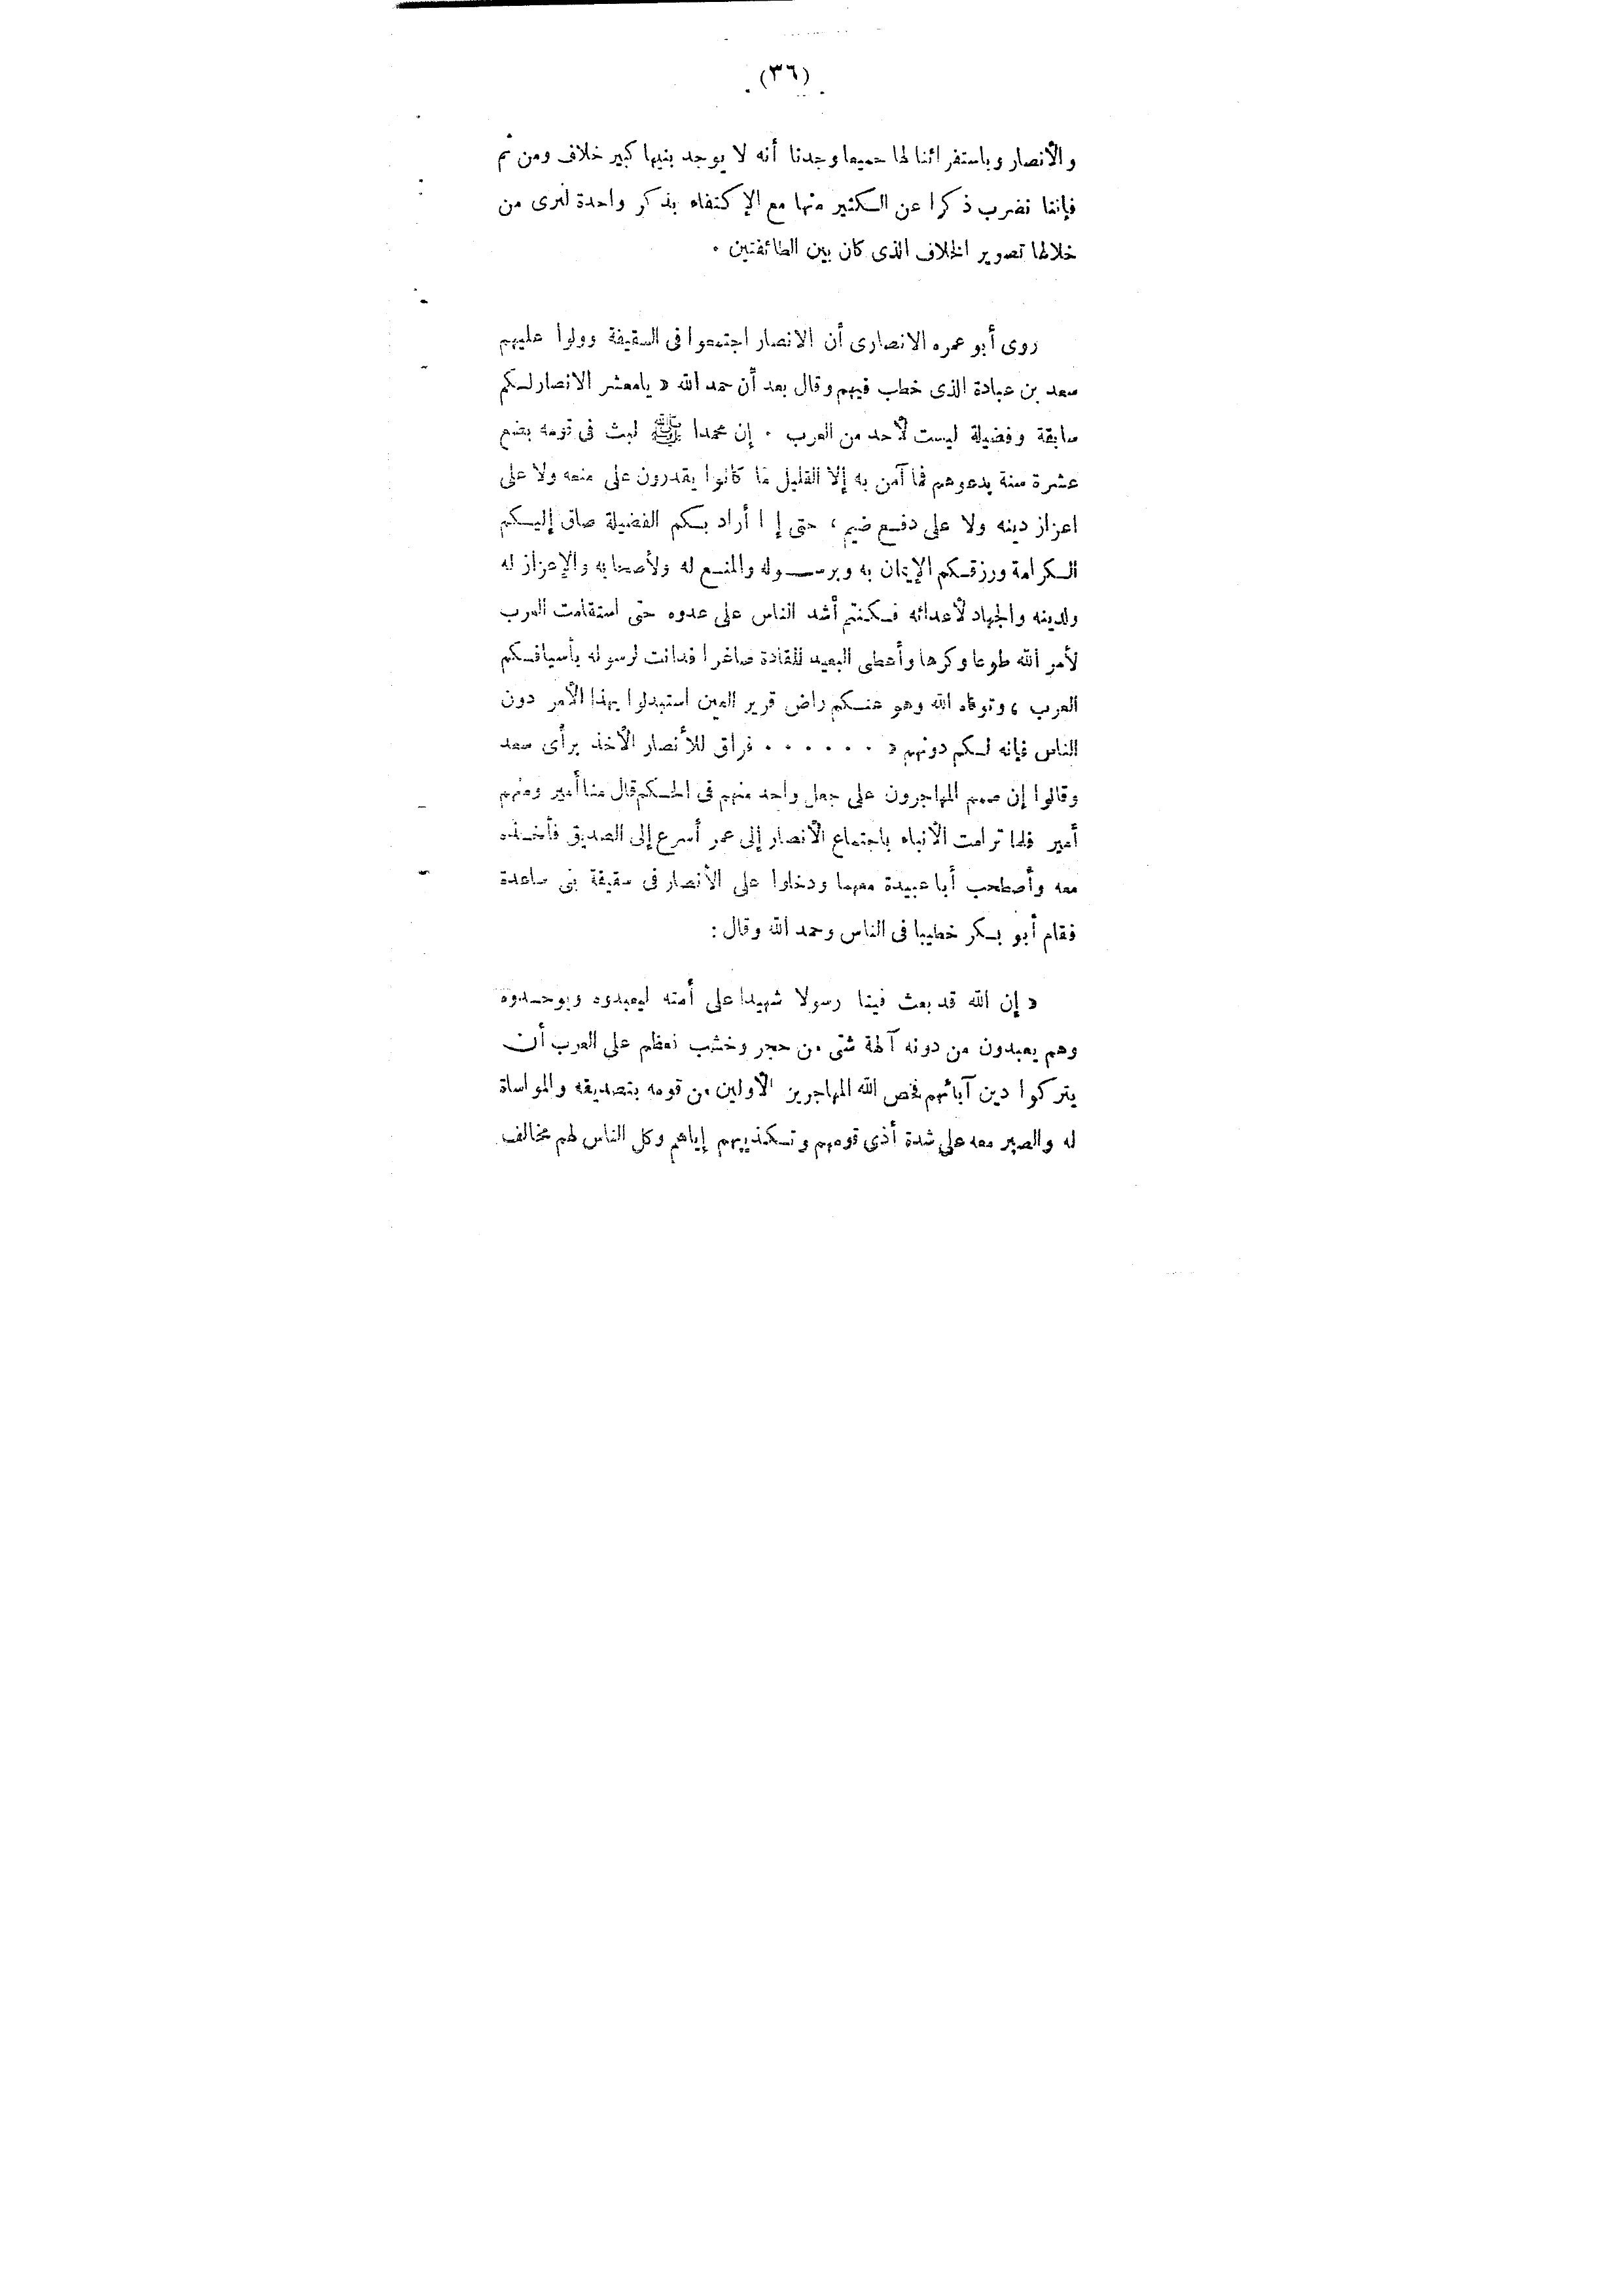 (٣٦)
والأنصار وباستقرائنا لها جميعا وجدنا أنه لا يوجد بينها كبير خلاف ومن ثم
فإننا نضرب ذكرا عن الكثير منها مع الإكتفاء بذكر واحدة لنرى من
خلالها تصوير الخلاف الذى كان بين الطائفتين .
روى أبو عمره الانصارى أن الانصار اجتمعوا فى السقيفة وولوا عليهم
سعد بن عبادة الذى خطب فيهم وقال بعد أن حمد الله « يامعشر الانصار لكم
سابقة وفضيلة ليست لأحد من العرب . إن محمدا ﷺ لبث فى قومه بضع
عشرة سنة يدعوهم فما آمن به إلا القليل ما كانوا يقدرون على منعه ولا على
اعزاز دينه ولا على دفع ضيم ، حتى إ ا أراد بكم الفضيلة ساق إليكم
الكرامة ورزقكم الإيمان به وبرسوله والمنع له ولأصحابه والإعزاز له
ولدينه والجهاد لأعدائه فكنتم أشد الناس على عدوه حتى استقامت العرب
لأمر الله طوعا وكرها وأعطى البعيد للقادة صاغرا فدانت لرسوله بأسيافكم
العرب ، وتوفاه الله وهو عنكم راض قرير العين استبدلوا بهذا الأمر دون
الناس فإنه لكم دونهم « . . . . . . فراق للأنصار الأخذ برأى سعد
وقالوا إن صمم المهاجرون على جعل واحد منهم فى الحكم قال منا أمير ومنهم
أمير فلما ترامت الأنباء باجتماع الأنصار إلى عمر أسرع إلى الصديق فأخذه
معه وأصطحب أبا عبيدة معهما ودخلوا على الأنصار فى سقيفة بنى ساعدة
فقام أبو بكر خطيبا فى الناس وحمد الله وقال :
« إن الله قد بعث فينا رسولا شهيدا على أمته ليعبدوه ويوحدوه
وهم يعبدون من دونه آلهة شتى من حجر وخشب نعظم على العرب أن
يتركوا دين آبائهم فخص الله المهاجرين الأولين من قومه بتصديقه والمواساة
له والصبر معه على شدة أذى قومهم وتكذيبهم إياهم وكل الناس لهم مخالف